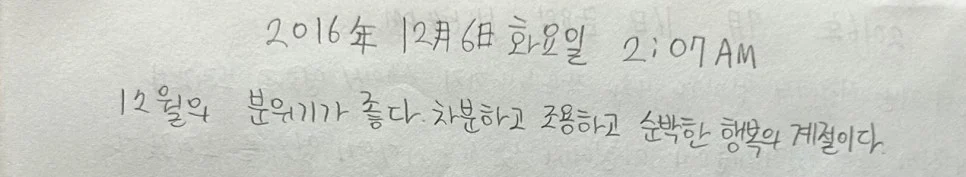 2016年 12月6日 화요일 2:07AM
12월의 분위기가 좋다. 차분하고 조용하고 순박한 행복의 계절이다.